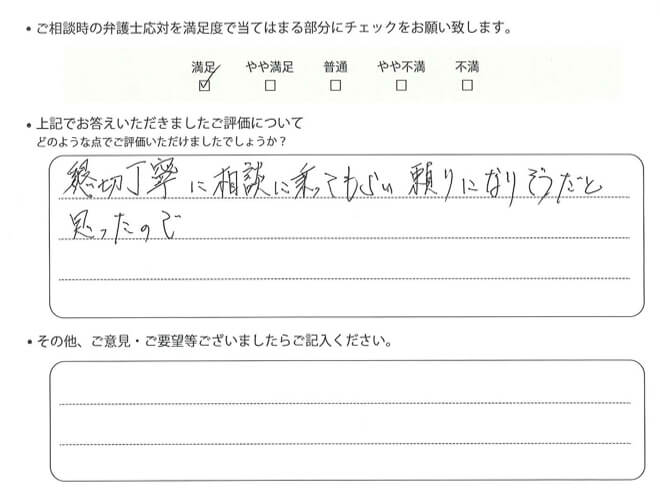 • ご相談時の弁護士応対を満足度で当てはまる部分にチェックをお願い致します。
満足 やや満足 普通 やや不満 不満
☑ □ □ □ □
• 上記でお答えいただきましたご評価について
どのような点でご評価いただけましたでしょうか？
懇切丁寧に相談に乗ってもらい頼りになりそうだと
思ったので
• その他、ご意見・ご要望等ございましたらご記入ください。